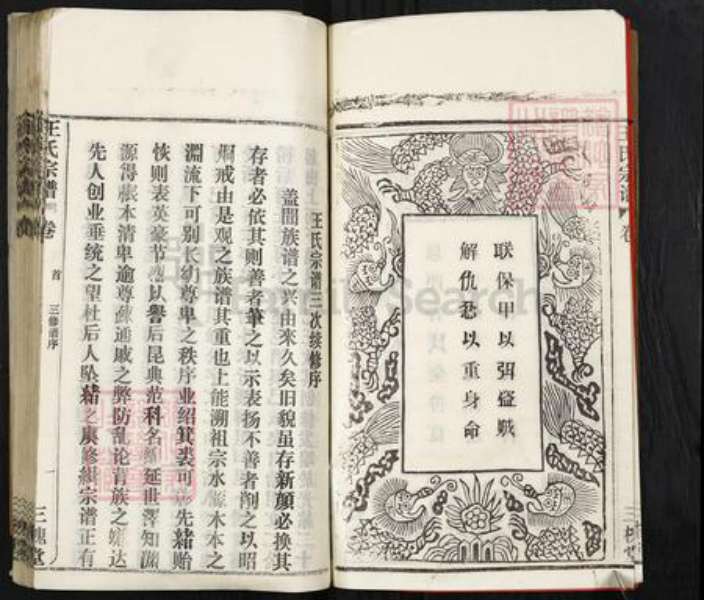 联保甲以弭盗贼
解仇忿以重身命
王氏宗谱
王氏宗谱三次续修序
盖闻族谱之兴由来久矣旧貌虽存新颜必换其
存者必依其则善者筆之以示表扬不善者削之以昭
炯戒由是观之族谱其重也上能溯祖宗水源木本之
渊流下可别长幼尊卑之秩序业绍箕裘可 先緒贻
恢则表英豪节 以誉后昆典范科名 延世澤知渊
源得根本清卑逾尊疎逾戚之弊防乱论 族之 达
先人创业垂统之望杜后人坠緒之 修緝宗谱正有
王氏宗谱 卷
首
三修谱序
一
三槐堂
FamilySearch